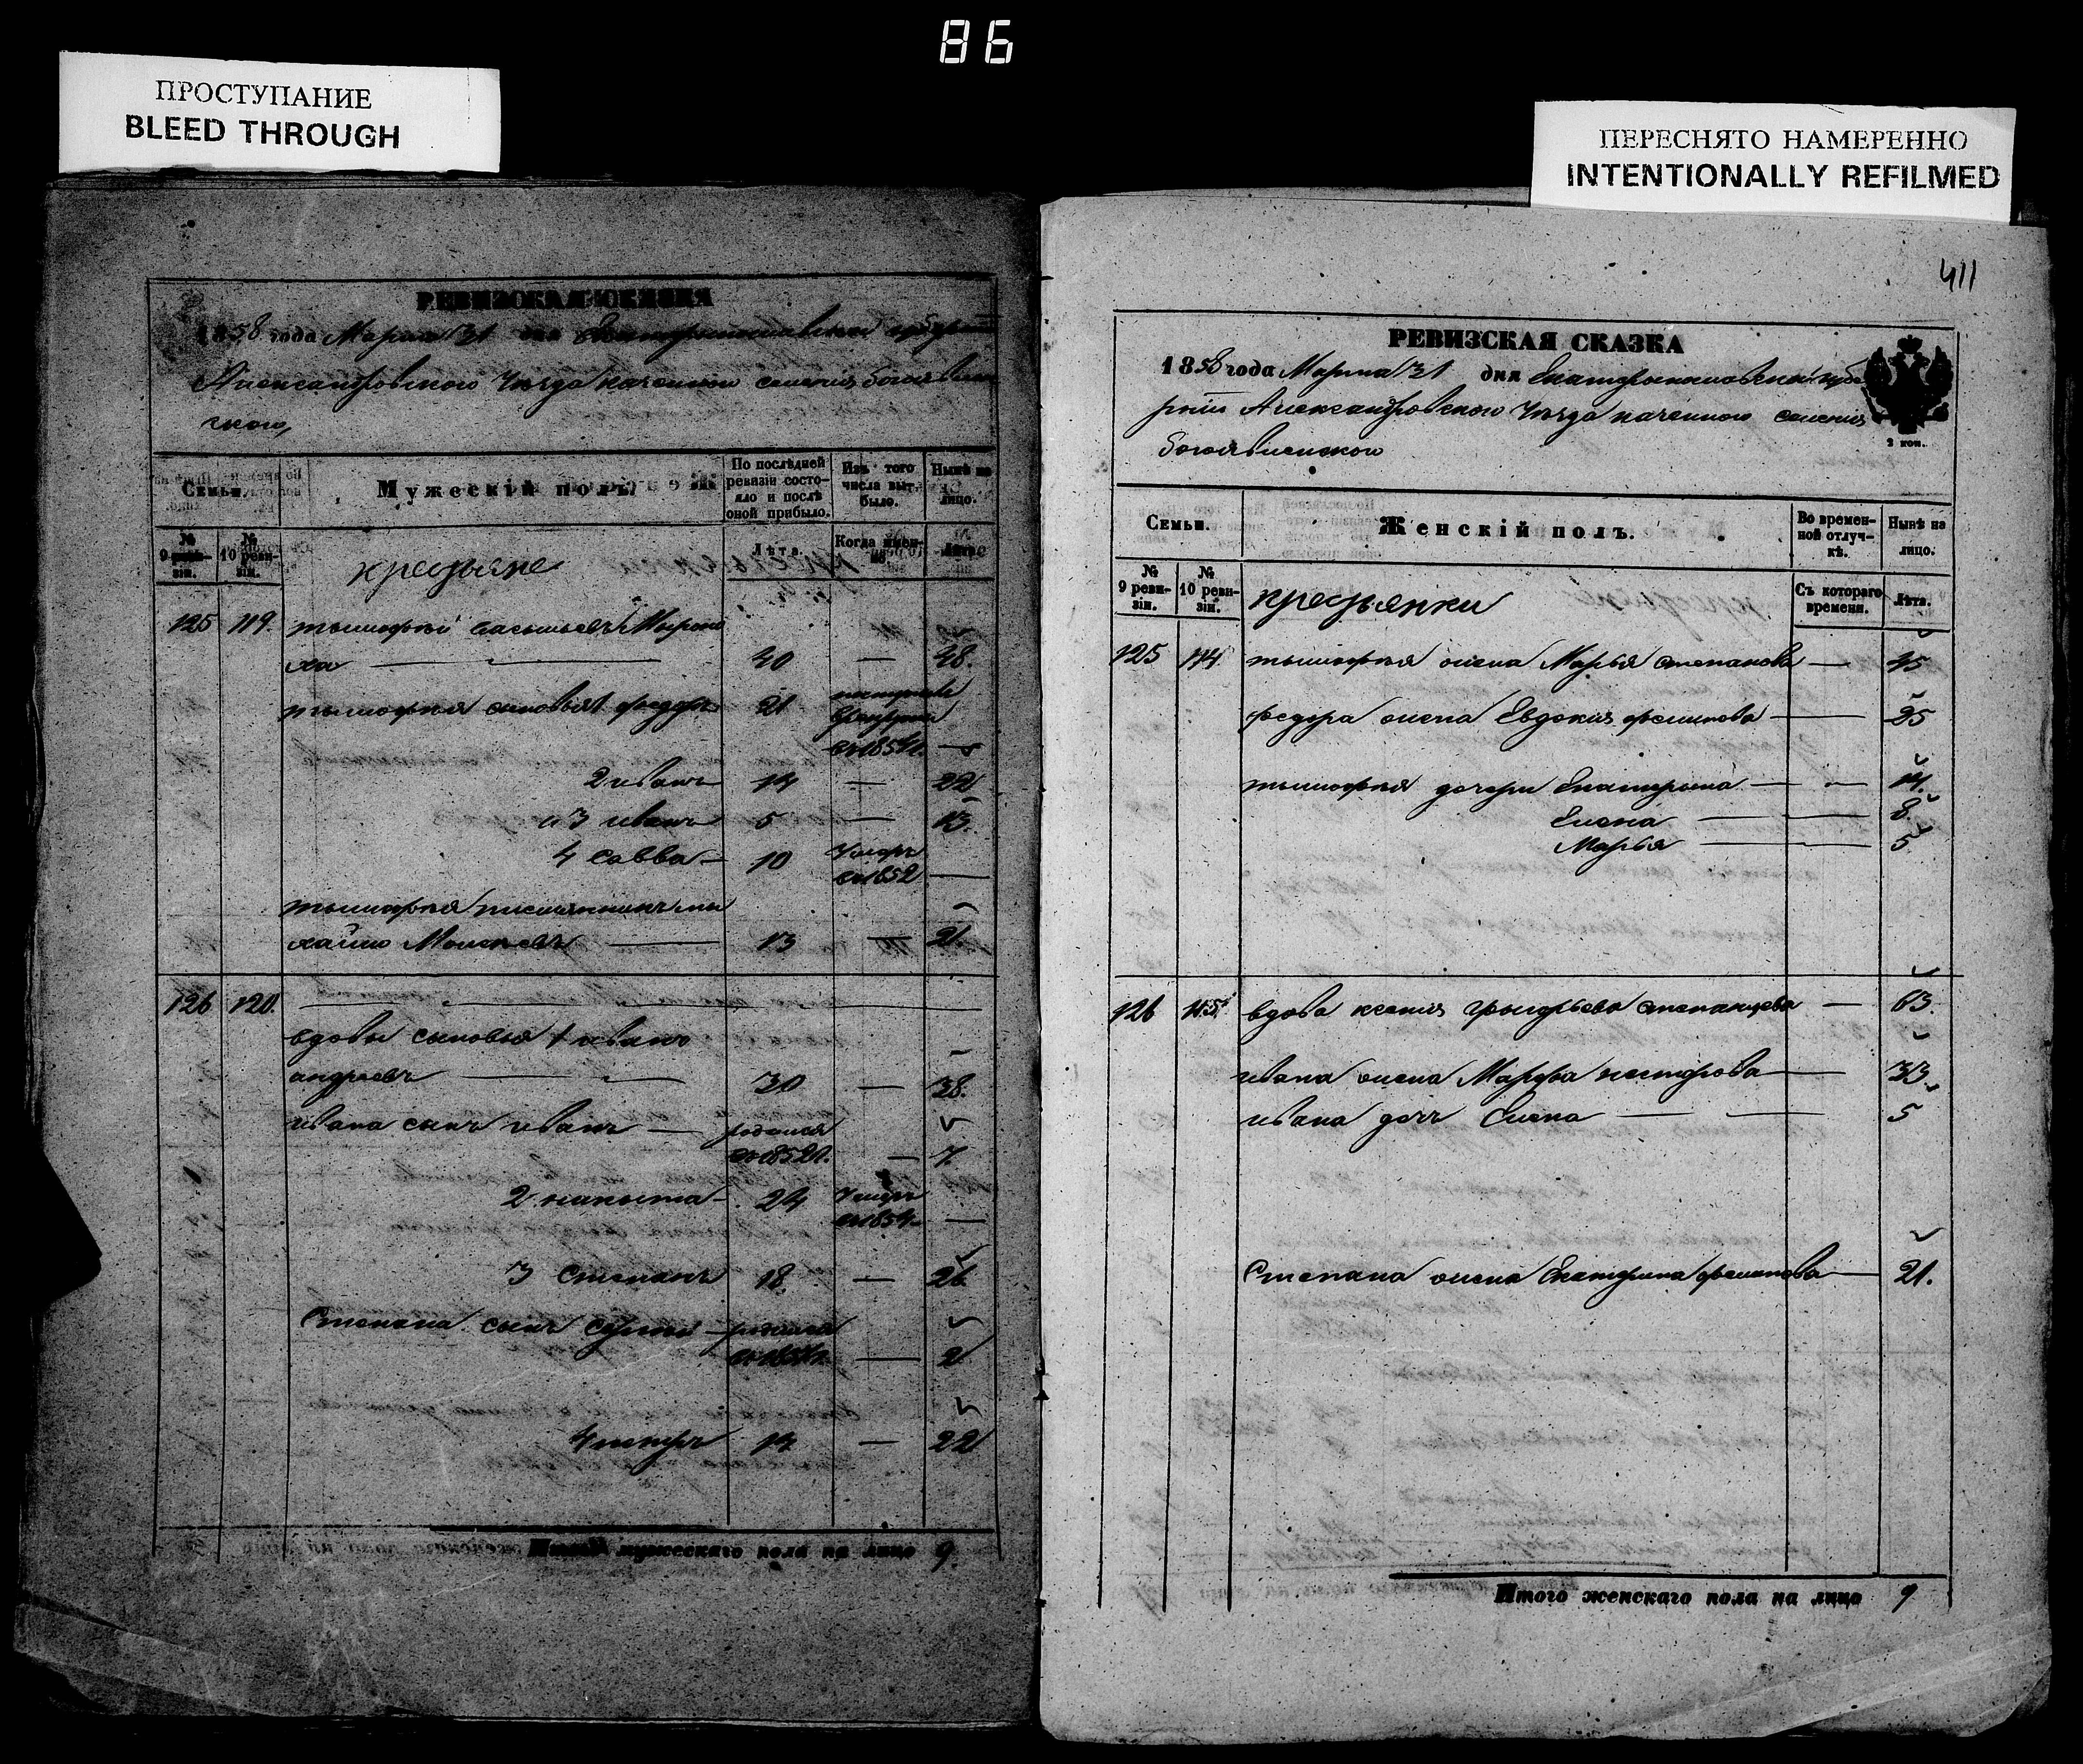 86
ПРОСТУПАНИЕ
BLEED THROUGH
ПЕРЕСНЯТО НАМЕРЕННО
INTENTIONALLY REFILMED
1858 года Марта 31 дня Екатеринославской губернии
Александровского Уезда казенного селения Богоявлен
ского,
Семьи.
Мужескій полъ.
По послѣдней ревизіи состояло и послѣ оной прибыло.
Изъ того числа выбыло.
Нынѣ на лицо.
№ 9 ревизіи.
№ 10 ревизіи.
крестьяне
Лѣта.
Когда именно
Лѣта
125 119. тимофей васильевъ Мироно
ха 40 — 48.
тимофея сыновья 1 федоръ 21
въ рекруты
въ 1854 г. —
2 иванъ 14 — 22
и 3 иванъ 5 — 13.
4 Савва — 10 Умеръ
въ 1852 —
тимофея племянникъ ми
хайло 13 — 21.
126 120.
вдовы сыновья 1 иванъ
андреевъ 30 — 38.
ивана сынъ иванъ — родился
въ 1852 г. — 7.
2 никита — 24 Умеръ
въ 1854 —
3 Степанъ 18. — 26
Степана сынъ Сергей — родился
— 2
4 петръ 14 — 22
Итого мужескаго пола на лицо 9.
411
РЕВИЗСКАЯ СКАЗКА
1858 года Марта 31 дня Екатеринославской губе
рніи Александровского Уезда казенного селения
Богоявленского
2 коп.
Семьи.
Женскій полъ.
Во временной отлучкѣ.
Нынѣ на лицо.
№ 9 ревизіи.
№ 10 ревизіи.
крестьянки
Съ котораго времени.
Лѣта.
125 тимофея жена Марья степанова — 45
федора жена Евдокия филипова — 25
тимофея дочери Екатерина — 14.
Елена — 8.
Марья — 5
126 вдова ксения григорьева степанцева — 63.
ивана жена Марфа нестерова — 33.
ивана дочь Елена — 5
Степана жена Екатерина филипова — 21.
Итого женскаго пола на лицо 9